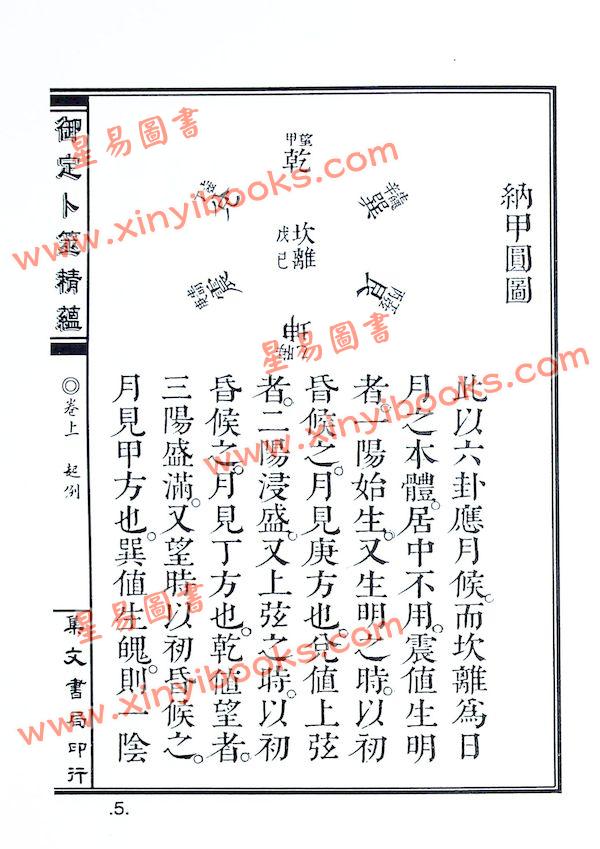 納甲圓圖
望
甲
乾
巽
坎離
戊己
兌
震
艮
坤
此以六卦應月候。而坎離為日
月之本體。居中不用。震值生明
者。一陽始生。又生明之時。以初
昏候之。月見庚方也。兌值上弦
者。二陽浸盛。又上弦之時。以初
昏候之。月見丁方也。乾值望者。
三陽盛滿。又望時以初昏候之。
月見甲方也。巽值生魄。則一陰
御定卜筮精蘊
◎卷上 起例
集文書局印行
.5.
星易圖書
www.xinyibooks.com
星易圖書
www.xinyibooks.com
星易圖書
www.xinyibooks.com